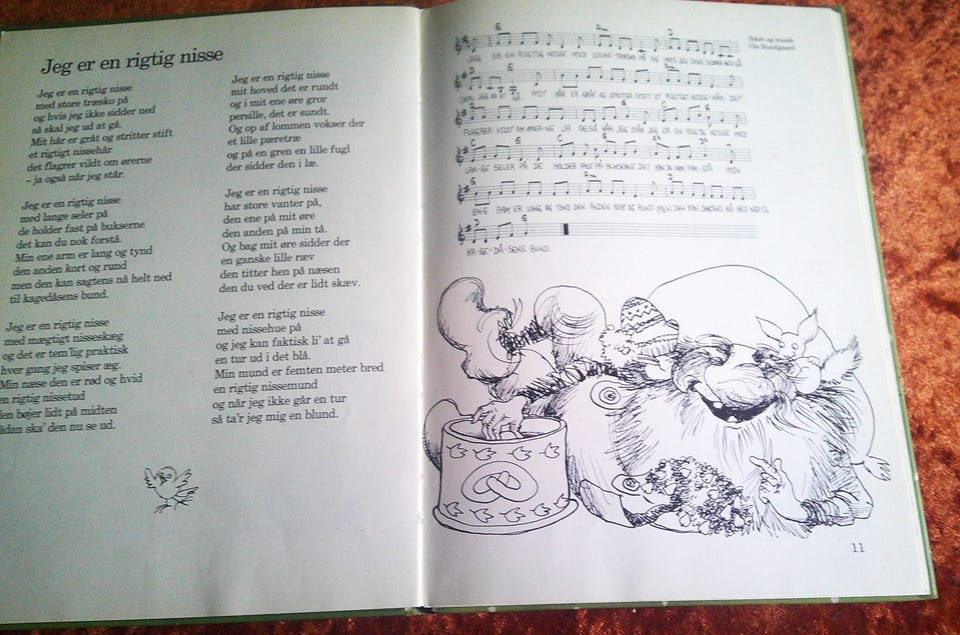 Jeg er en rigtig nisse
Jeg er en rigtig nisse
med store træsko på
og hvis jeg ikke sidder ned
så skal jeg ud at gå.
Mit hår er gråt og stritter stift
et rigtigt nissehår
det flagrer vildt om ørerne
– ja også når jeg står.
Jeg er en rigtig nisse
med lange seler på
de holder fast på bukserne
det kan du nok forstå.
Min ene arm er lang og tynd
den anden kort og rund
men den kan sagtens nå helt ned
til kagedåsens bund.
Jeg er en rigtig nisse
med mægtigt nisseskæg
og det er tem'lig praktisk
hver gang jeg spiser æg.
Min næse den er rød og hvid
en rigtig nissetud
den bøjer lidt på midten
sådan ska' den nu se ud.
Jeg er en rigtig nisse
mit hoved det er rundt
og i mit ene øre gror
persille, det er sundt.
Og op af lommen vokser der
et lille pæretræ
og på en gren en lille fugl
der sidder den i læ.
Jeg er en rigtig nisse
har store vanter på,
den ene på mit øre
den anden på min tå.
Og bag mit øre sidder der
en ganske lille ræv
den titter hen på næsen
den du ved der er lidt skæv.
Jeg er en rigtig nisse
med nissehue på
og jeg kan faktisk li' at gå
en tur ud i det blå.
Min mund er femten meter bred
en rigtig nissemund
og når jeg ikke går en tur
så ta'r jeg mig en blund.
Tekst og musik
JEG ER EN RIGTIG NISSE MED STORE TRÆSKO PÅ OG HVIS JEG IKKE
MIT HÅR ER GRÅT OG STRITTER STIFT ET RIGTIGT NISSE-HÅR DET
FLAGRER VILDT OM ØRER-NE JA OGSÅ NÅR JEG STÅR JEG ER EN RIGTIG NISSE MED
LAN-GE SELER PÅ DE HOLDER FAST PÅ BUKSERNE DET KAN DU NOK FOR-STÅ MIN
EN-E ARM ER LANG OG TYND DEN ANDEN KORT OG RUND MEN DEN KAN SAGTENS NÅ HELT NED TIL
KA-GE-DÅ-SENS BUND
11